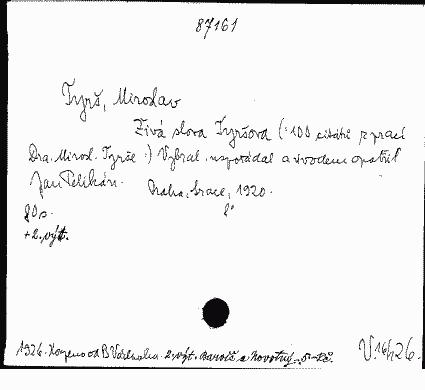 87161
Tyrš, Miroslav
Živá slova Tyršova (: 100 citátů z prací
Dra. Mirosl. Tyrše :) Vybral, uspořádal a úvodem opatřil
Jan Pelikán. Praha, Grace, 1920.
80 s. 8°
+ 2. výt.
1926. Koupeno od B Vaš 2. výt. Bartoš a Novotný
V.16h26.